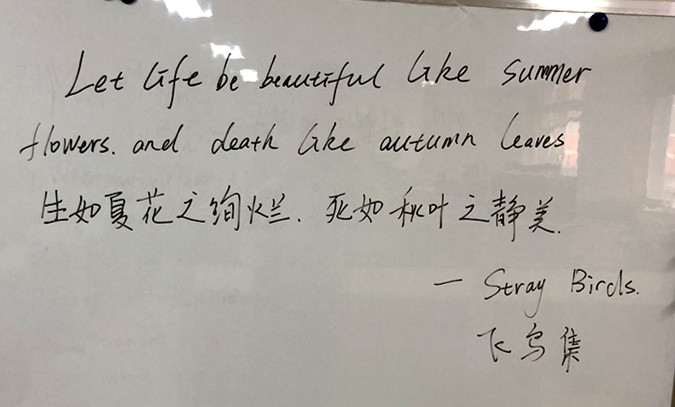 Let life be beautiful like summer
flowers. and death like autumn leaves
生如夏花之绚烂. 死如秋叶之静美.
— Stray Birds.
飞鸟集